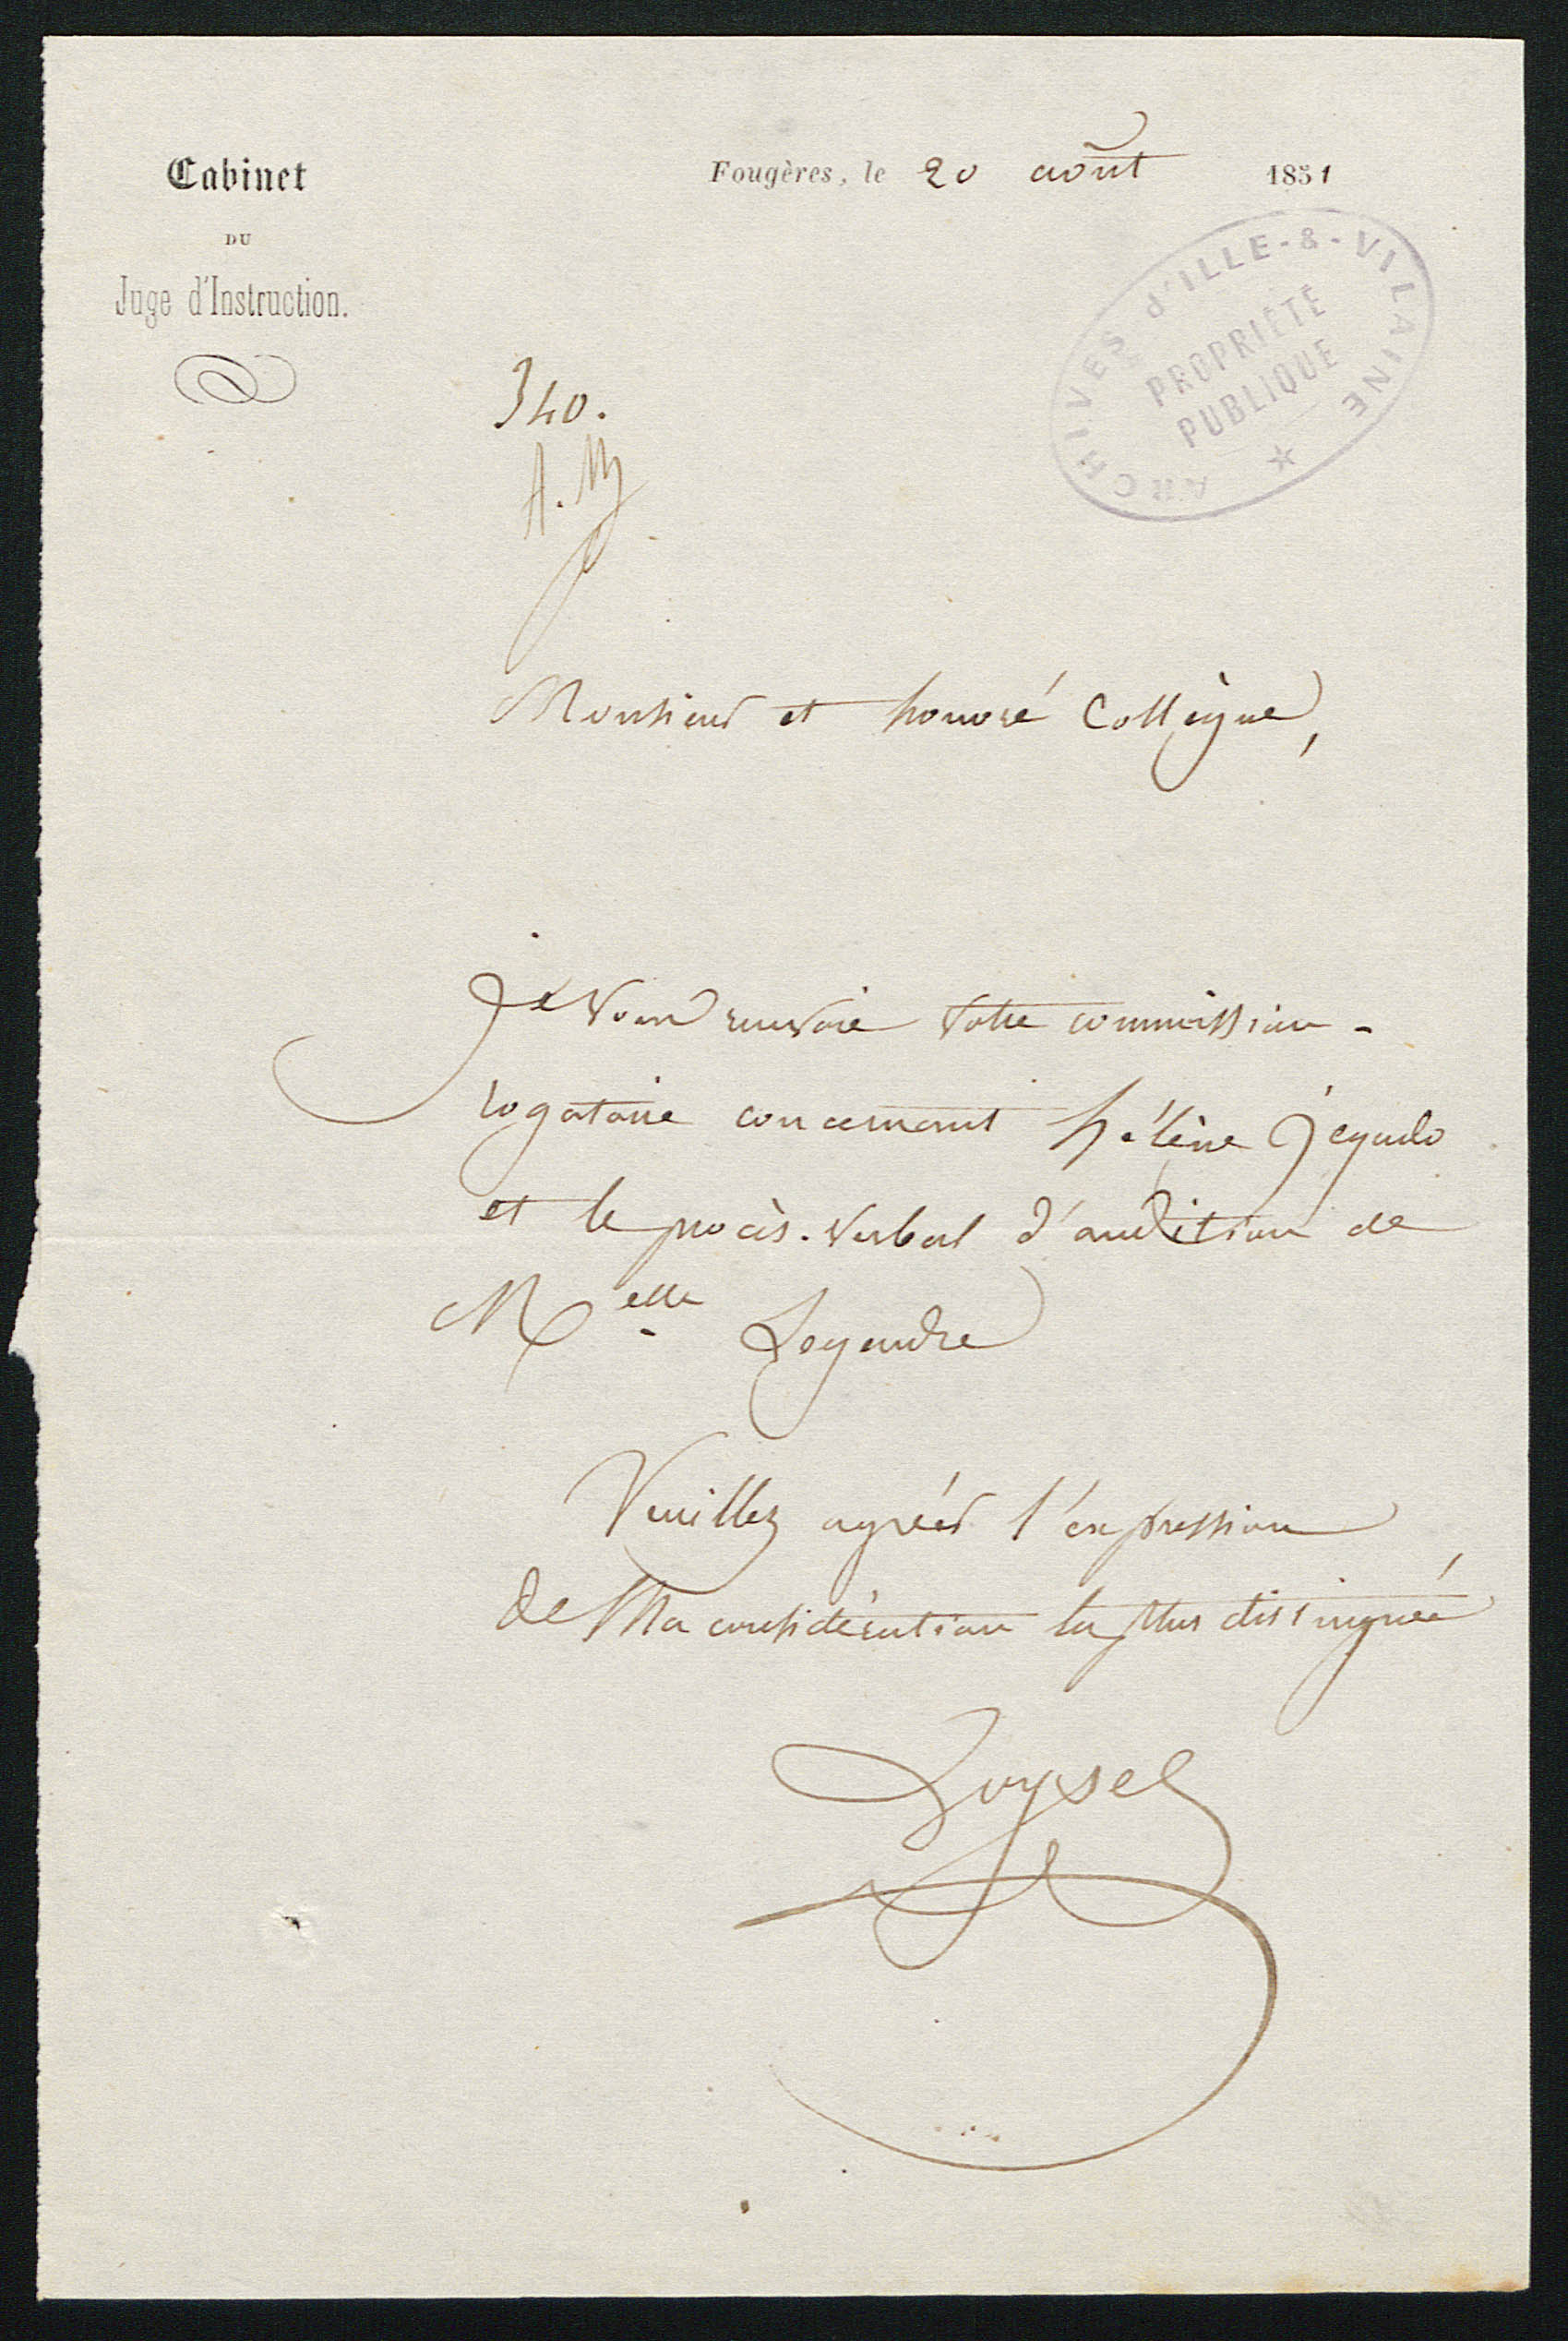 Cabinet
DU
Juge d'Instruction.
Fougères, le 20 août 1851
ARCHIVES d'ILLE-&-VILAINE
PROPRIÉTÉ
PUBLIQUE
340.
A. M
Monsieur et honoré Collègue,
Je vous renvoie votre commission-
rogatoire concernant hélène Jégado
et le procès-verbal d'audition de
Melle Legendre
Veuillez agréer l'expression
de Ma considération la plus distinguée
Loysel